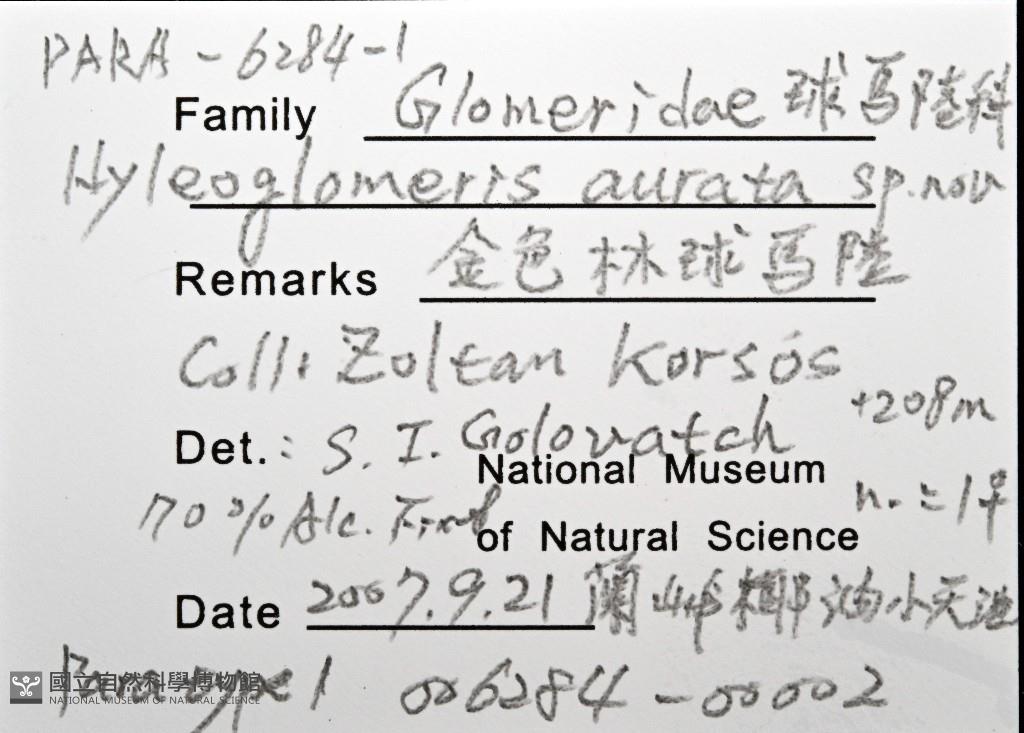 PARA-6284-1
Family Glomeridae 球馬陸科
Hyleoglomeris aurata sp.nov
Remarks 金色林球馬陸
Coll: Zoltan Korsós
+208m
Det.: S. I. Golovatch
National Museum
70% Alc. n.=1♀
of Natural Science
Date 2007.9.21 蘭嶼椰油小天池
Paratype 1 006284-00002
國立自然科學博物館
NATIONAL MUSEUM OF NATURAL SCIENCE